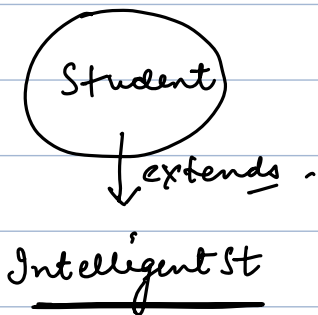 Student
extends.
IntelligentSt